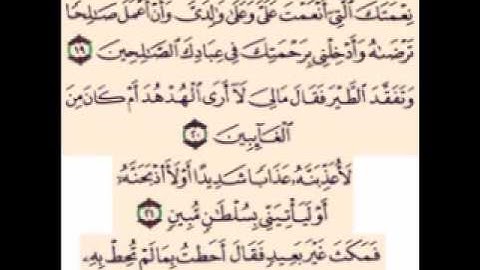 نِعْمَتَكَ ٱلَّتِىٓ أَنْعَمْتَ عَلَىَّ وَعَلَىٰ وَٰلِدَىَّ وَأَنْ أَعْمَلَ صَٰلِحًا
تَرْضَىٰهُ وَأَدْخِلْنِى بِرَحْمَتِكَ فِى عِبَادِكَ ٱلصَّٰلِحِينَ ١٩
وَتَفَقَّدَ ٱلطَّيْرَ فَقَالَ مَالِىَ لَآ أَرَى ٱلْهُدْهُدَ أَمْ كَانَ مِنَ
ٱلْغَآئِبِينَ ٢٠
لَأُعَذِّبَنَّهُۥ عَذَابًا شَدِيدًا أَوْ لَأَا۟ذْبَحَنَّهُۥٓ
أَوْ لَيَأْتِيَنِّى بِسُلْطَٰنٍ مُّبِينٍ ٢١
فَمَكَثَ غَيْرَ بَعِيدٍ فَقَالَ أَحَطتُ بِمَا لَمْ تُحِطْ بِهِۦ